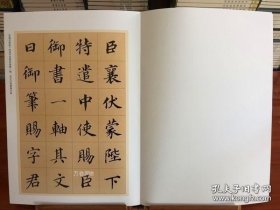 臣襄伏蒙陛下
特遣中使賜臣
御書一軸其文
曰御筆賜字君